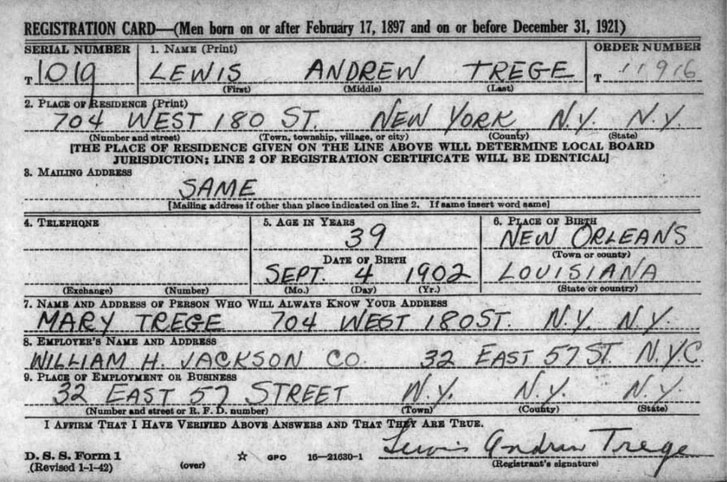 REGISTRATION CARD—(Men born on or after February 17, 1897 and on or before December 31, 1921)
SERIAL NUMBER 1. NAME (Print) ORDER NUMBER
T 1019 LEWIS ANDREW TREGE T 11916
(First) (Middle) (Last)
2. PLACE OF RESIDENCE (Print)
704 WEST 180 ST. NEW YORK N.Y. N.Y.
(Number and street) (Town, township, village, or city) (County) (State)
[THE PLACE OF RESIDENCE GIVEN ON THE LINE ABOVE WILL DETERMINE LOCAL BOARD
JURISDICTION; LINE 2 OF REGISTRATION CERTIFICATE WILL BE IDENTICAL]
3. MAILING ADDRESS
SAME
[Mailing address if other than place indicated on line 2. If same insert word same]
4. TELEPHONE 5. AGE IN YEARS 6. PLACE OF BIRTH
39 NEW ORLEANS
DATE OF BIRTH (Town or county)
SEPT. 4 1902 LOUISIANA
(Exchange) (Number) (Mo.) (Day) (Yr.) (State or country)
7. NAME AND ADDRESS OF PERSON WHO WILL ALWAYS KNOW YOUR ADDRESS
MARY TREGE 704 WEST 180 ST. N.Y. N.Y.
8. EMPLOYER'S NAME AND ADDRESS
WILLIAM H. JACKSON CO. 32 EAST 57 ST. N.Y.C.
9. PLACE OF EMPLOYMENT OR BUSINESS
32 EAST 57 STREET N.Y. N.Y. N.Y.
(Number and street or R. F. D. number) (Town) (County) (State)
I AFFIRM THAT I HAVE VERIFIED ABOVE ANSWERS AND THAT THEY ARE TRUE.
Lewis Andrew Trege
D. S. S. Form 1
(Revised 1-1-42) (over) ☆ GPO 16—21630-1 (Registrant's signature)